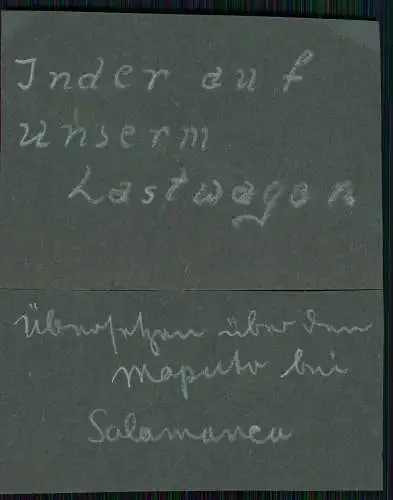 Inder auf
unserm
Lastwagen
Übersetzen über den
Maputo bei
Salamanca